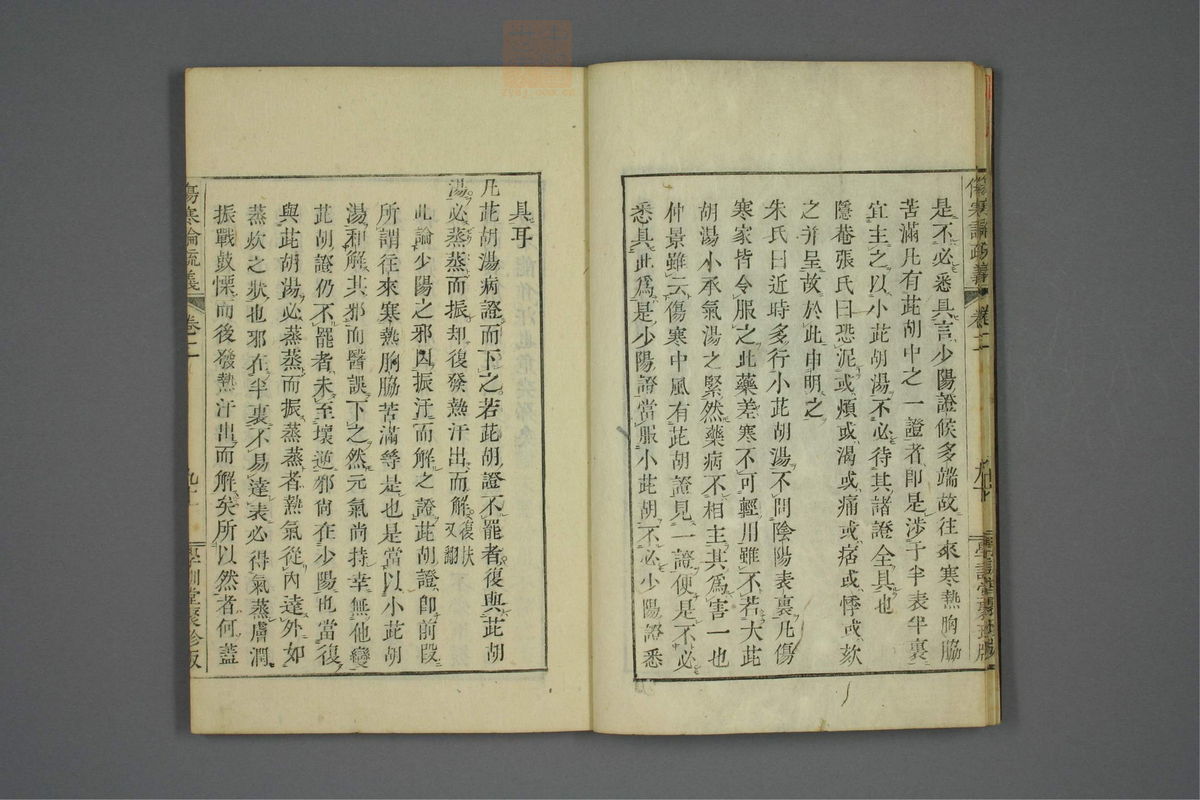 是不必悉具言少陽證候多端故往來寒熱胸脇
苦滿凡有茈胡中之一證者卽是涉于半表半裏
宜主之以小茈胡湯不必待其諸證全具也
隱菴張氏曰恐泥或煩或渴或痛或痞或悸或欬
之并呈故於此申明之
朱氏曰近時多行小茈胡湯不問陰陽表裏凡傷
寒家皆令服之此藥差寒不可輕用雖不若大茈
胡湯小承氣湯之緊然藥病不相主其爲害一也
仲景雖云傷寒中風有茈胡證見一證便是不必
悉具此爲是少陽證當服小茈胡不必少陽證悉
具耳
凡茈胡湯病證而下之若茈胡證不罷者復與茈胡
湯必蒸蒸而振却復發熱汗出而解復扶又翻
此論少陽之邪因振汗而解之證茈胡證卽前段
所謂往來寒熱胸脇苦滿等是也是當以小茈胡
湯和解其邪而醫誤下之然元氣尚持幸無他變
茈胡證仍不罷者未至壞逆邪尚在少陽也當復
與茈胡湯必蒸蒸而振蒸蒸者熱氣從內達外如
蒸炊之狀也邪在半裏不易達表必得氣蒸膚潤
振戰鼓慄而後發熱汗出而解矣所以然者何蓋
傷寒論疏義 卷二 學訓堂聚珍版